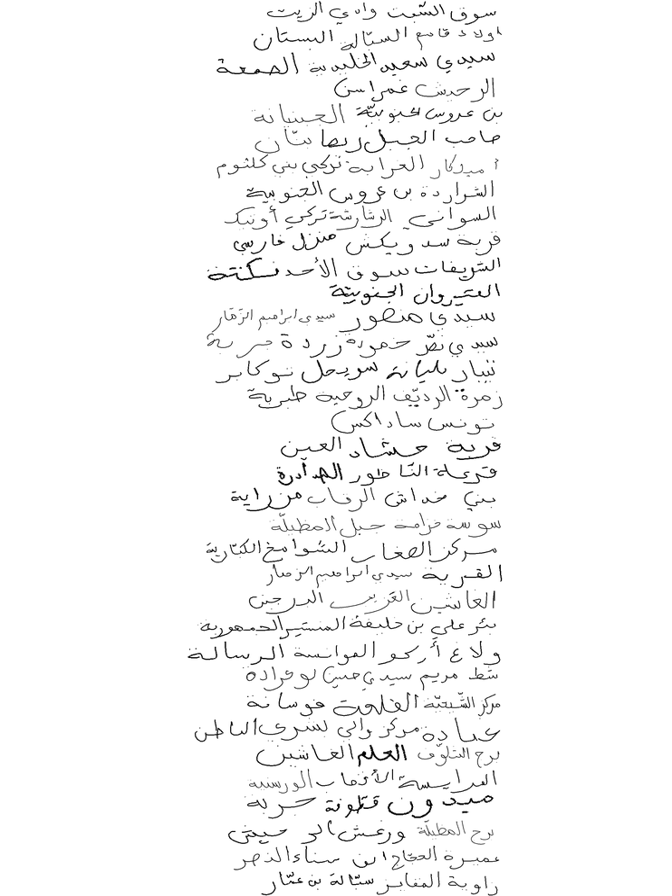 سوق السبت وادي الزيت
اولاد قاسم الستالة البستان
سيدي سعيد الخليدية الصمعة
الرحيش غمراسن
بن عروس الجنوبيّة الجبنيانة
صاحب الجبل ريصا بنّان
أميلكار العرابة تركي بني كلثوم
الشراردة بن عروس الجنوبية
السواني الرثارثة تركي أوتيك
قرية سدويكش منزل فارسي
الشريفات سوق الأحد نكتة
القيروان الجنوبيّة
سيدي منصور سيدي ابراهيم الزهّار
سيدي نصر حمودة زردة حربة
نيبار مليانة سويحل توكابر
زمرة الرديّف الروحية طبرية
تونس ساداكس
قرية حشاد العين
قرعة الناظور الصدادرة
بني خداش الرقاب مزراية
سوسة قرامة جبل المظيلّة
مركز الصغار الشوامخ الكتّارية
القرية سيدي ابراهيم الزهار
الغاشين الغريب الدرجين
بئر علي بن خليفة المنستير الجمهورية
ولاغ أركو الفوانسة الرسالة
شط مريم سيدي حسين لوفرادة
مركز الشّيحيّة القلعة فوسانة
عبادة مركز والي لسري الباطن
برج التلوّف العلم الغاشين
الفرايسة الأقصاب الورسنية
ميدون قطّوفة حربة
برج المظيلّة ورغش الر حيش
عميرة الحجّاج ابن سناء النصر
زاوية المقايز ستالة بن عمّار